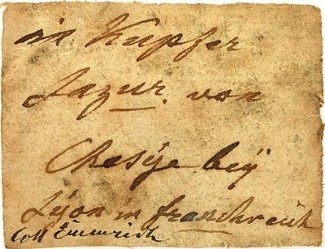 Kupfer
Lazur. von
Chesÿe beÿ
Lÿon in franchreich
Coll Emmrich